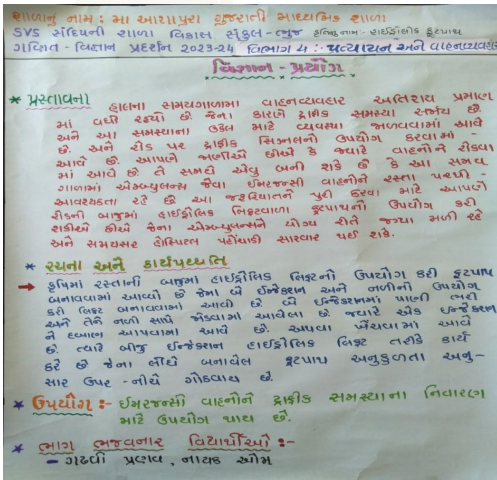 શાળાનું નામ : મા આશાપુરા ગુજરાતી માધ્યમિક શાળા
SVS સાંદિપની શાળા વિકાસ સંકુલ-ભુજ કૃતિનું નામ - હાઈડ્રોલીક ફૂટપાથ
ગણિત - વિજ્ઞાન પ્રદર્શન 2023-24 વિભાગ 4 :- પ્રત્યાયન અને વાહનવ્યવહાર
વિજ્ઞાન - પ્રયોગ
* પ્રસ્તાવના
હાલના સમયગાળામાં વાહનવ્યવહાર અતિશય પ્રમાણ
માં વધી રહ્યો છે જેના કારણે ટ્રાફીક સમસ્યા સર્જાય છે.
અને આ સમસ્યાના ઉકેલ માટે વ્યવસ્થા જાળવવામાં આવે
છે. અને રોડ પર ટ્રાફીક સિગ્નલનો ઉપયોગ કરવામાં -
આવે છે. આપણે જાણીએ છીએ કે જ્યારે વાહનોને રોકવા
માં આવે છે તે સમયે એવુ બની શકે છે કે આ સમય
ગાળામાં એમ્બ્યુલન્સ જેવા ઈમરજન્સી વાહનોને રસ્તા પરથી -
આવશ્યકતા રહે છે આ જરૂરિયાતને પુરી કરવા માટે આપણે
રોડની બાજુમાં હાઈડ્રોલિક લિફ્ટવાળા ફૂટપાથનો ઉપયોગ કરી
શકીએ છીએ જેના એમ્બ્યુલન્સને યોગ્ય રીતે જગ્યા મળી રહે
અને સમયસર હોસ્પિટલ પહોંચાડી સારવાર થઈ શકે.
* રચના અને કાર્યપધ્ધતિ
→ કૃતિમાં રસ્તાની બાજુમાં હાઈડ્રોલિક લિફ્ટનો ઉપયોગ કરી ફૂટપાથ
બનાવવામાં આવ્યો છે જેના બે ઈન્જેકશન અને નળીનો ઉપયોગ
કરી લિફ્ટ બનાવવામાં આવી છે બે ઈન્જેકશનમાં પાણી ભરી
અને તેને નળી સાથે જોડવામાં આવેલા છે જ્યારે એક ઈન્જેકશન
ને દબાણ આપવામાં આવે છે. અથવા ખેંચવામાં આવે
છે. ત્યારે બીજુ ઈન્જેકશન હાઈડ્રોલિક લિફ્ટ તરીકે કાર્ય
કરે છે જેના લીધે બનાવેલ ફૂટપાથ અનુકુળતા અનુ-
સાર ઉપર-નીચે ગોઠવાય છે.
* ઉપયોગ :- ઈમરજન્સી વાહનોને ટ્રાફીક સમસ્યાના નિવારણ
માટે ઉપયોગ થાય છે.
* ભાગ ભજવનાર વિદ્યાર્થીઓ :-
- ગઢવી પ્રણવ, નાયક ઓમ